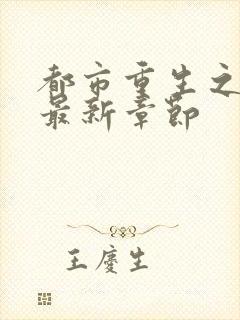 都市重生之
最新章节
王庆生